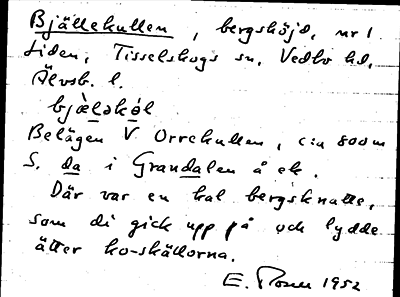 Bjällekullen, bergshöjd, nr 1
Liden, Tisselskogs sn, Vedbo hd,
Älvsb. l.
bjæ̀ləkə́l
Belägen V Orrekullen, c:a 800 m
S. da i Grandalen å ek.
Där var en kal bergsknatte,
som di gick upp på och lydde
ätter ko-skällorna.
E. 1952